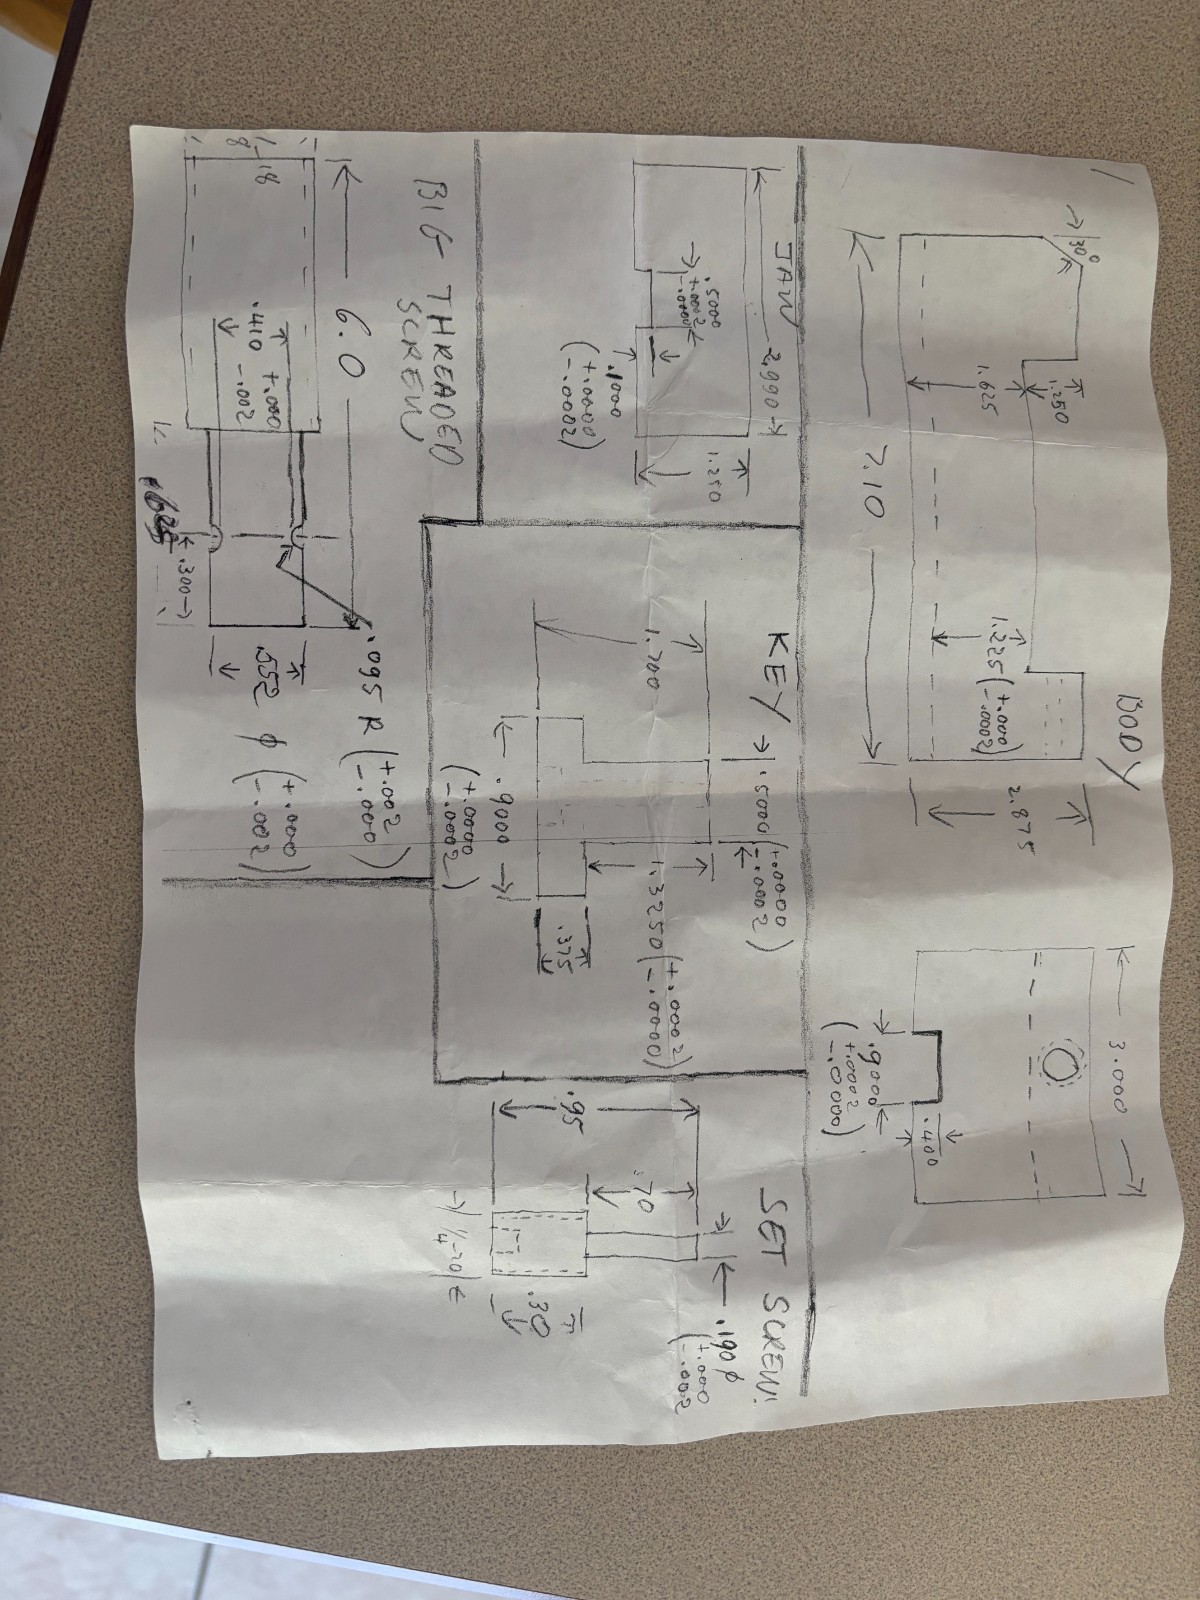 BODY
30°
1.250
1.625
7.10
1.225 (+.000
-.0002)
2.875
3.000
.9000
(+.0002
-.0000)
.400
JAW
2.990
.5000
+.0002
-.0000
.1000
(+.0000
-.0002)
1.250
KEY
.5000 (+.0000
-.0002)
1.700
1.3250 (+.0002
-.0000)
.9000
(+.0000
-.0002)
.375
SET SCREW!
.190 ϕ
(+.000
-.002
.95
.70
1/4-20
.30
BIG THREADED
SCREW
6.0
1-8
.410 +.000
-.002
.300
.552 ϕ (+.000
-.002)
.095 R (+.002
-.000)